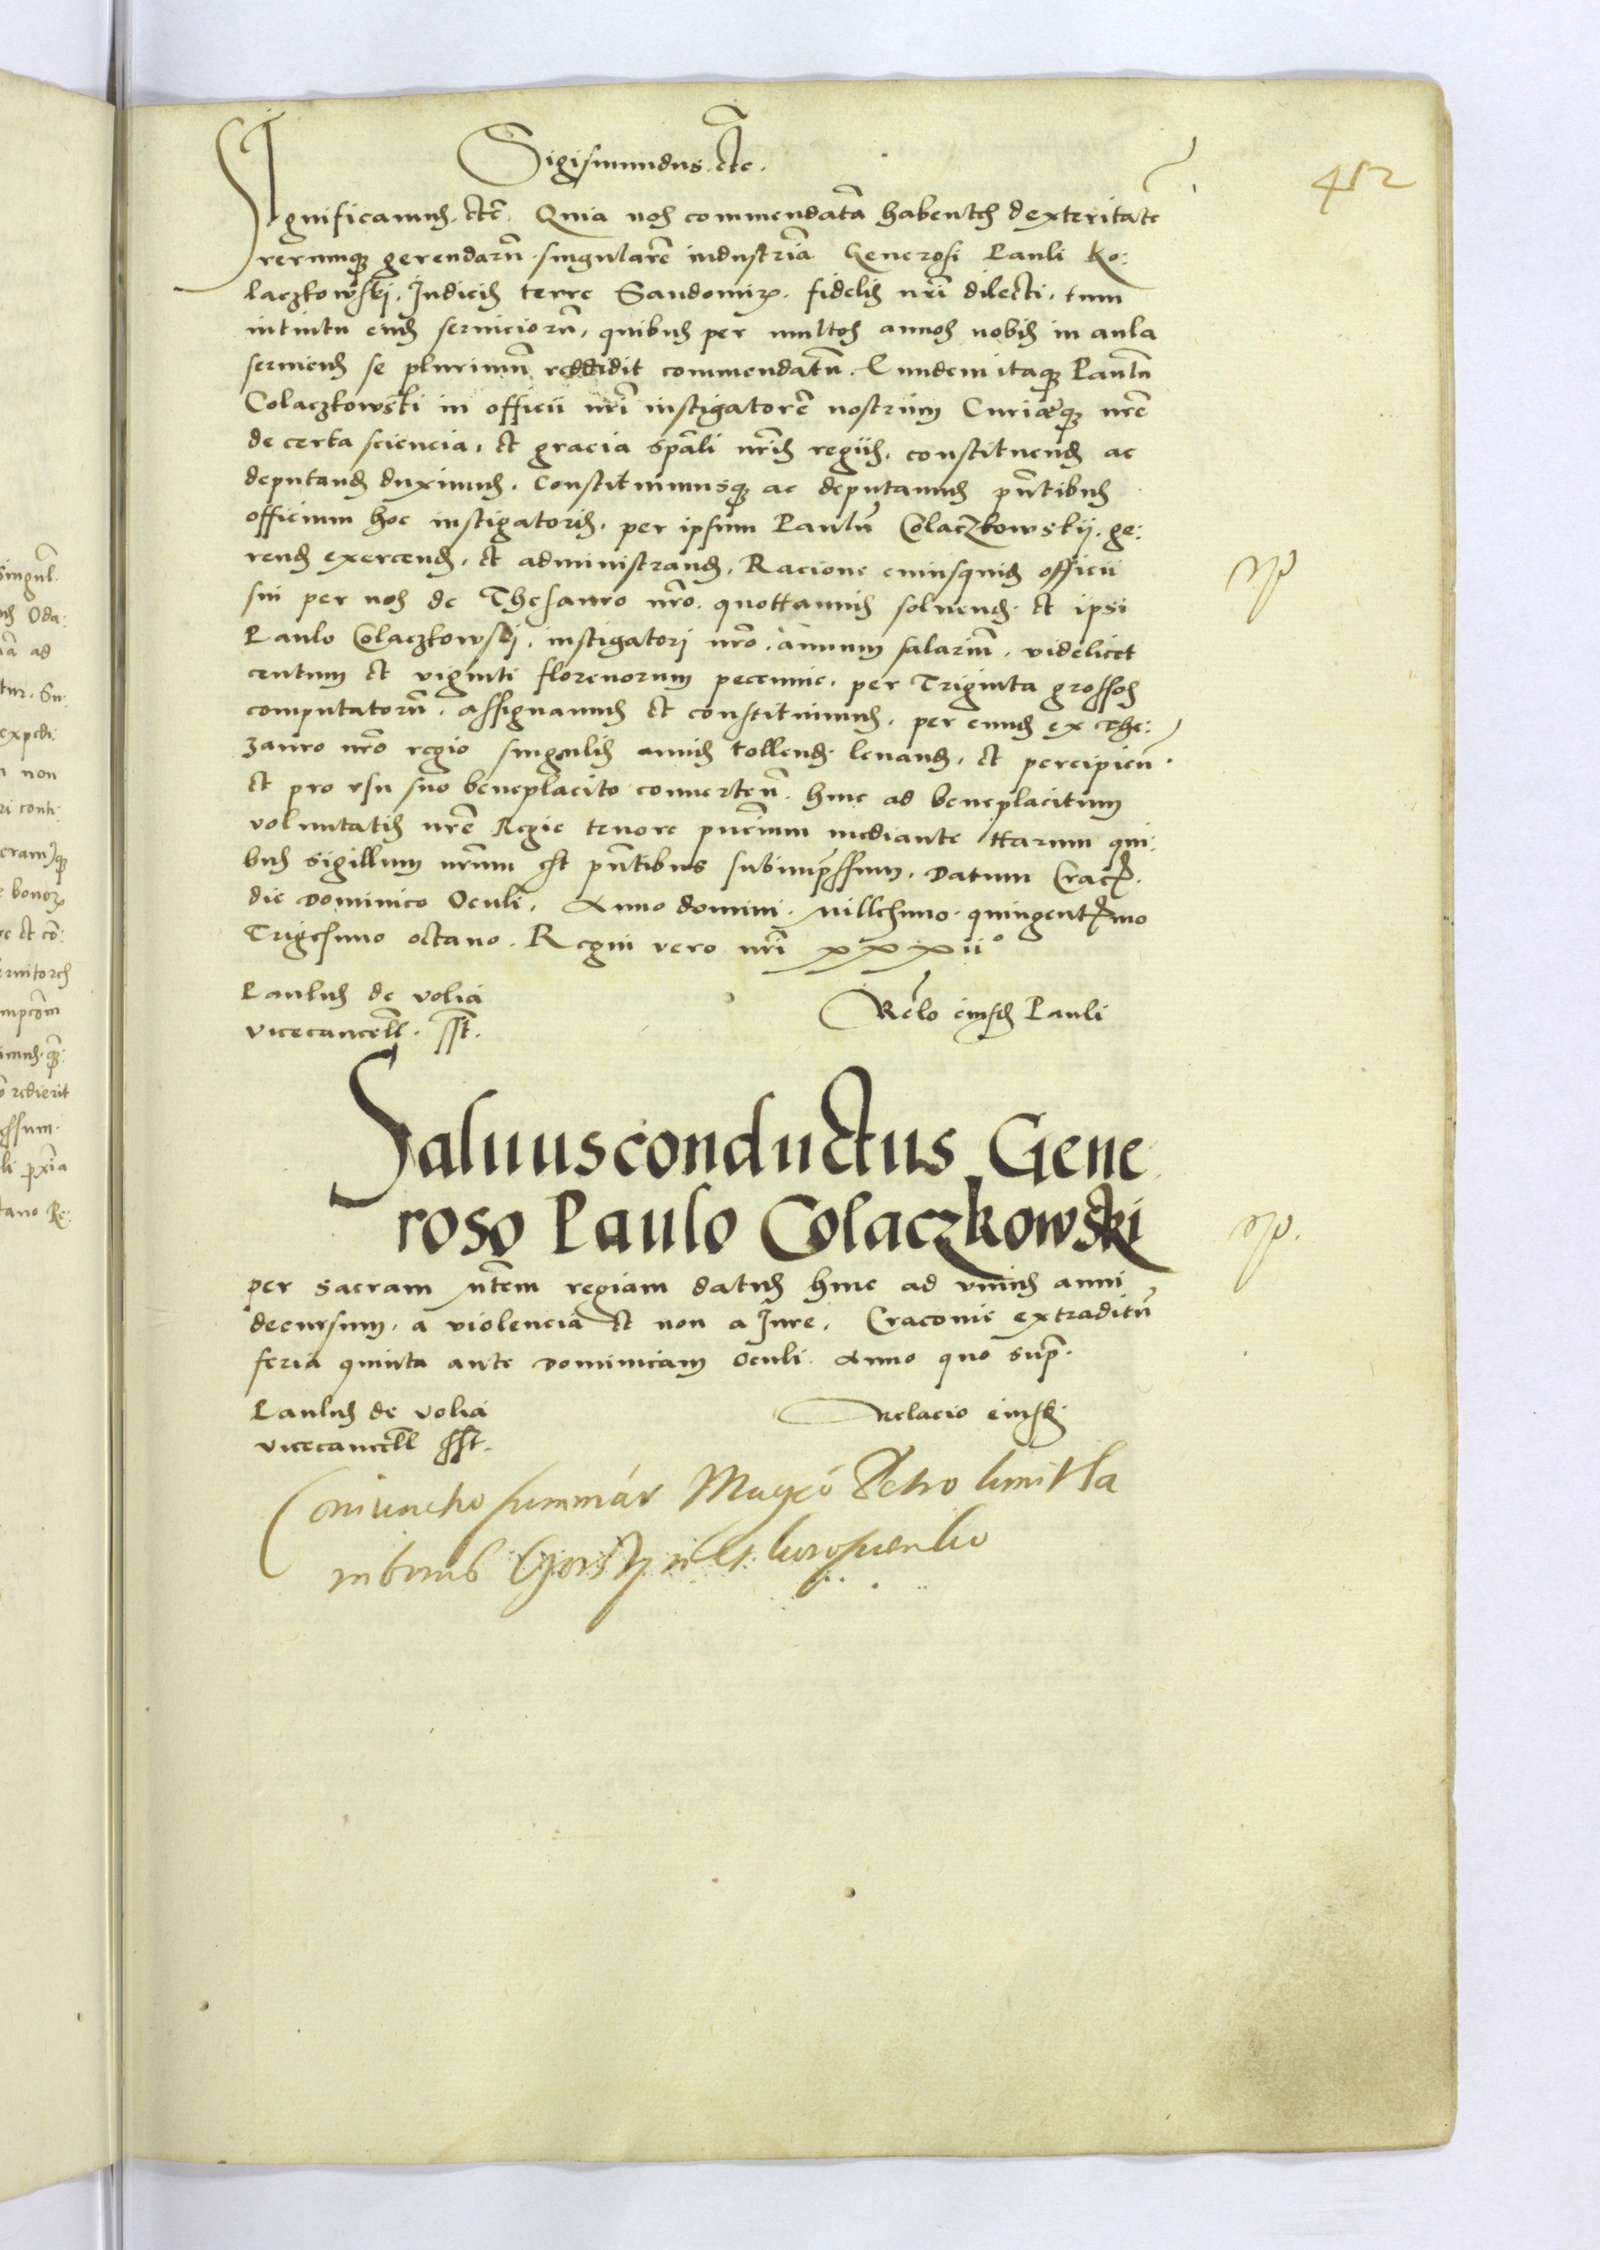 Sigismundus etc.
452
Significamus. etc. Quia nos commendatā habentes dexteritatē
rerumq gerendarū singularē industriā Generosi Pauli Ko:
laczkowski, Judicis terre Sandomir. fidelis nrī dilecti, tum
intuitu eius serviciorū, quibus per multos annos nobis in aula
seruiens se plurimū reddidit commendatū. Eundem itaq Paulū
Colaczkowski in officii nrī instigatorē nostrum Curiæq nrē
de certa sciencia, et gracia spāli nrīs regiis, constituend ac
deputand duximus. Constituimusq ac deputamus pūtibus
officium hoc instigatoris, per ipsum Paulū Colaczkowskij, ge:
rend exercend, et administrand. Racione cuiusquid officii
sui per nos de Thesauro nrō. quottannis soluend. et ipsi
Paulo Colaczkowski, instigatori nrō, annuum salariū, videlicet
centum et viginti florenorum pecunie, per Triginta grossos
computatorū. assignamus et constituimus, per eund ex The:
zauro nrō regio singulis annis tollend. leuand, et percipien.
et pro vsu suo beneplacito conuerten. hinc ad beneplacitum
voluntatis nrē Regie tenore pncium mediante ttarum qui:
bus sigillum nrum est pūtibus subimpressum. Datum Crac.
die Dominico Oculi. Anno domini. Millesimo. quingentmo
Trigesimo octauo. Regni vero nrī xxxii°
Paulus de volia
vicecancell. sst.
Relō eiusd Pauli
Saluusconductus Gene
roso Paulo Colaczkowski
per sacram Mtem regiam datus hinc ad vnius anni
decursum, a violencia et non a Jure. Cracovie extraditū
feria quinta ante Dominicam Oculi. Anno quo sup.
Paulus de volia
vicecancell sst.
Relacio eiusd.
Coniunctio summar Magco Petro Kmitha
in bonis